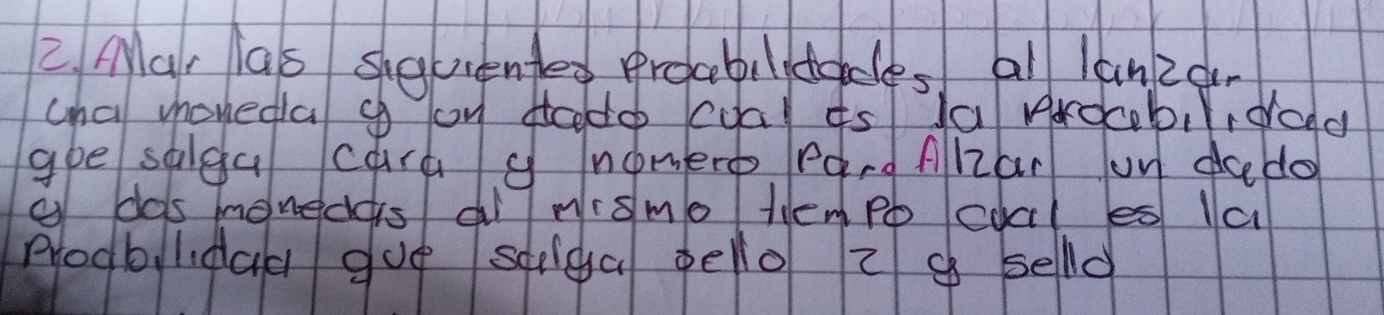 2. Allar las siguientes procabilidades, al lanzar
una moneda y un dado cual es la procabilidad
que salga cara y numero Para Alzar un dado
y dos monedas al mismo tiempo cual es la
Proabilidad que salga sello 2 y sello